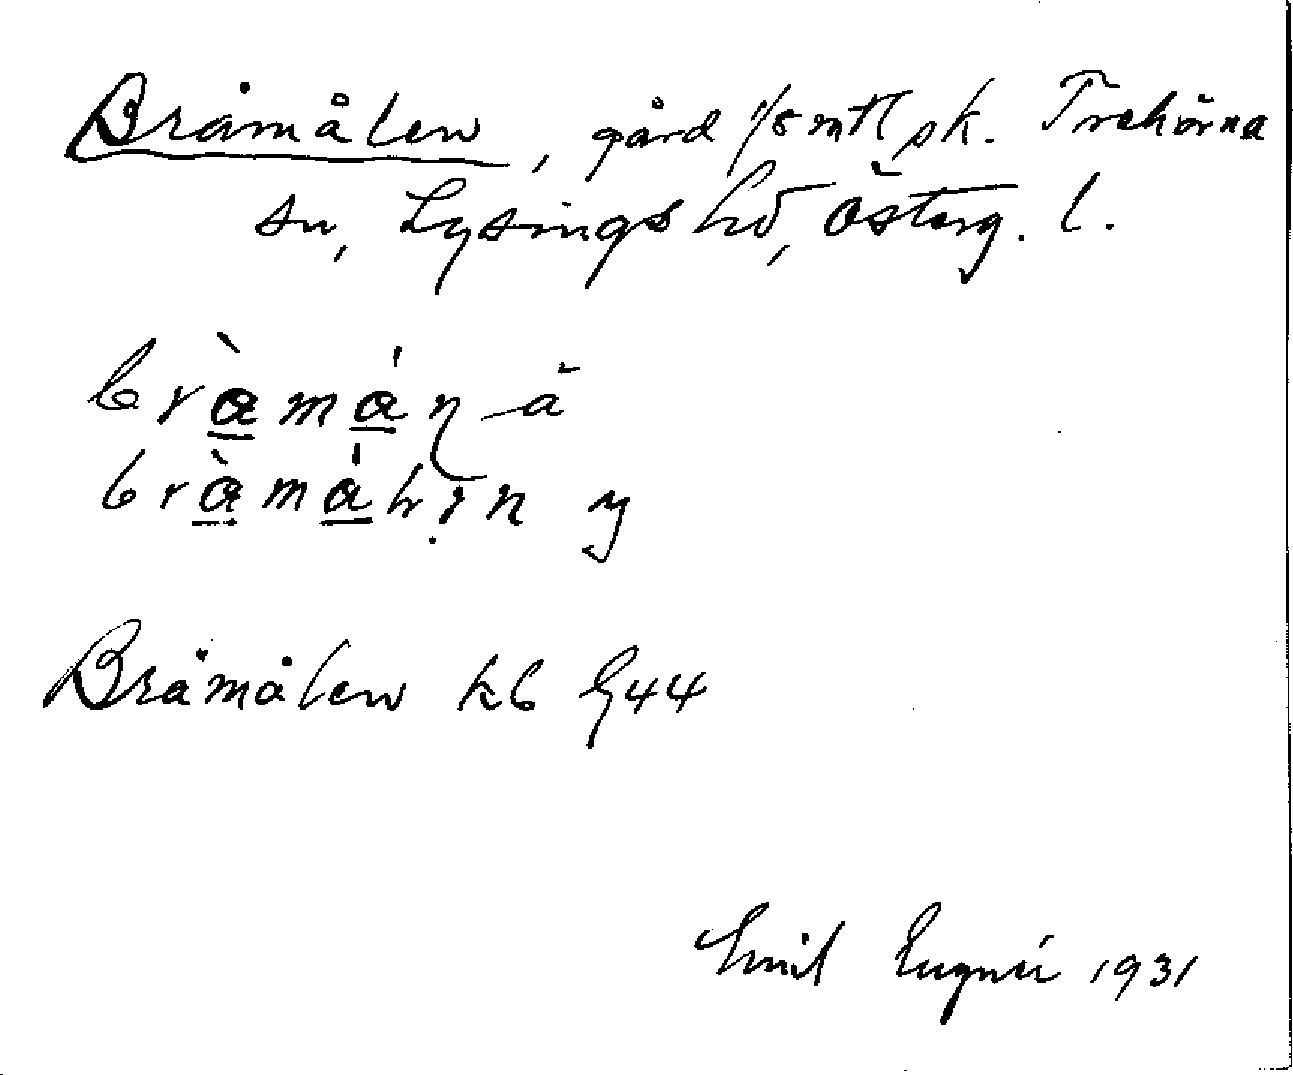 Bråmålen, gård 1/8 mtl sk. Trehörna
sn, Lysings hd, Österg. l.
bràmán ä
bràmáln y
Brämålen kb G44
Emil 1931